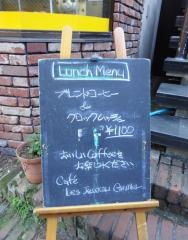 Lunch Menu
ブレンドコーヒー
&
クロックムッシュ
¥1100
おいしいCoffeeを
お楽しみください
Café
Les Jeux